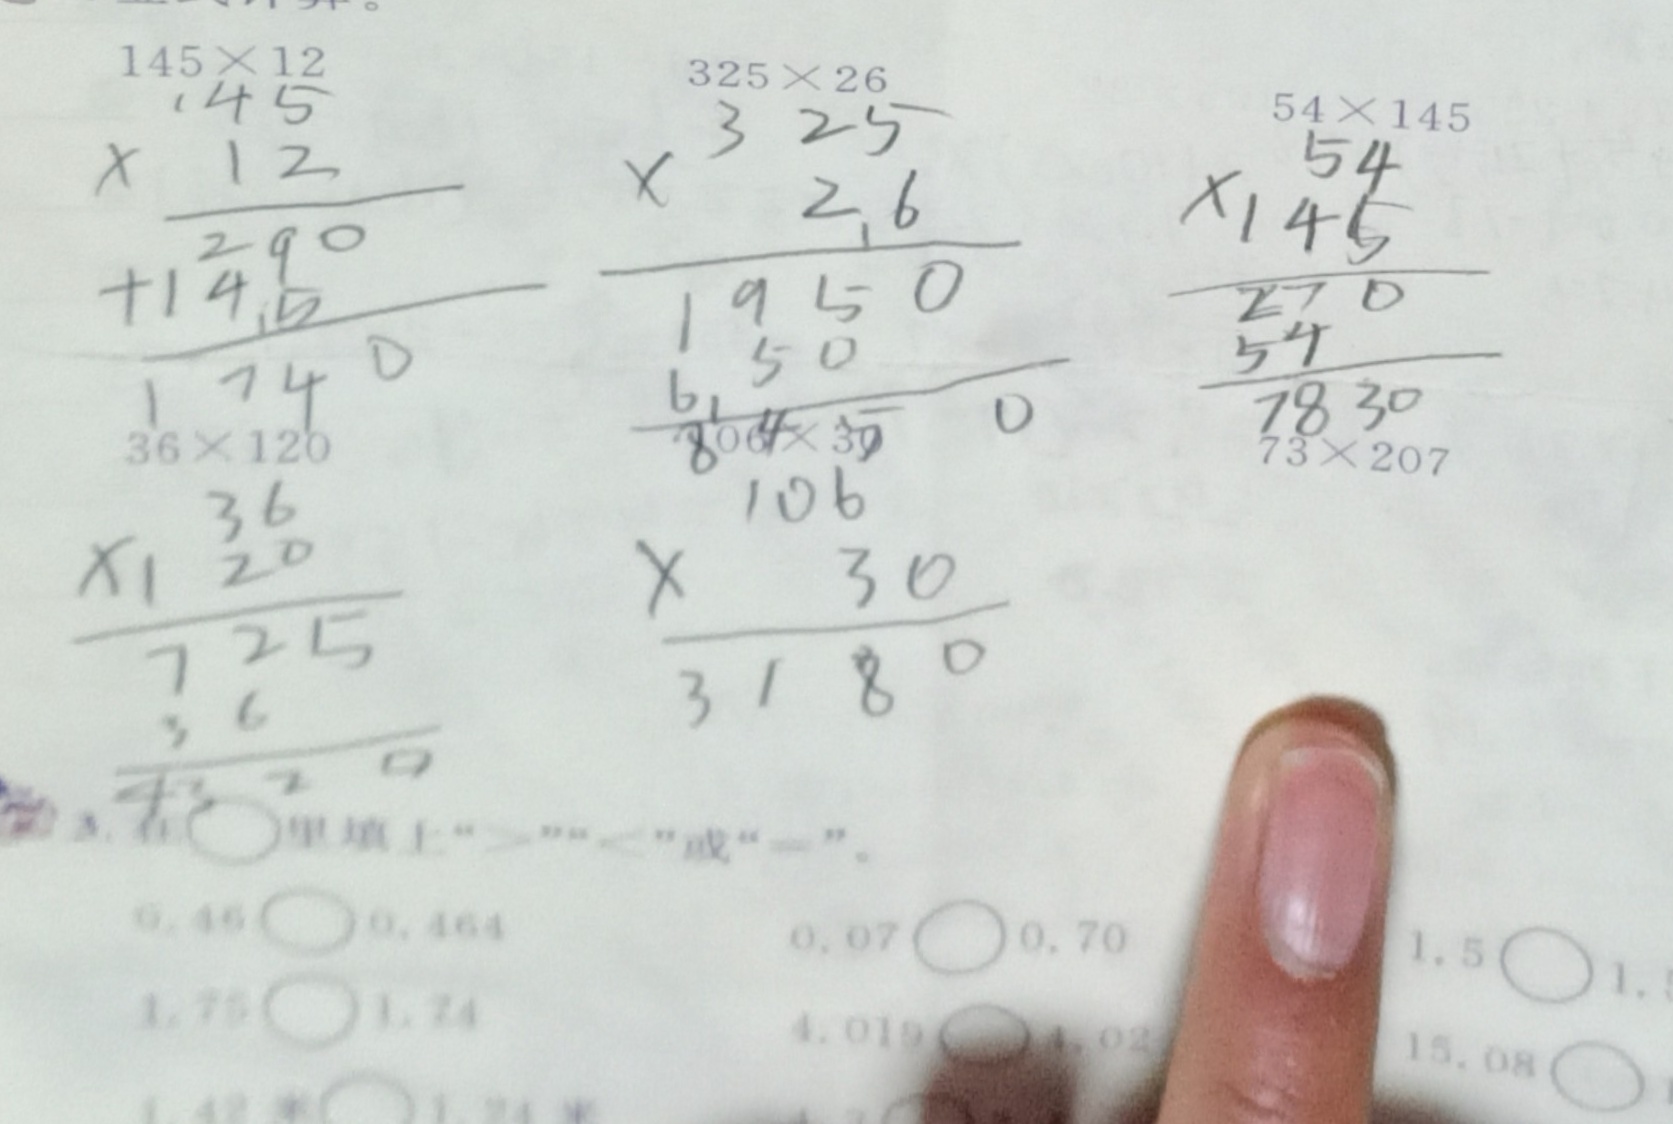 145×12
145
× 12
290
+145
1740
325×26
325
× 26
1950
650
8450
54×145
54
×145
270
54
7830
36×120
36
×120
725
36
4320
106×30
106
× 30
3180
73×207
3.在○里填上“>”“<”或“=”。
0.46○0.464
0.07○0.70
1.5○1.
1.75○1.74
4.019○4.02
15.08○
1.42米○1.24米